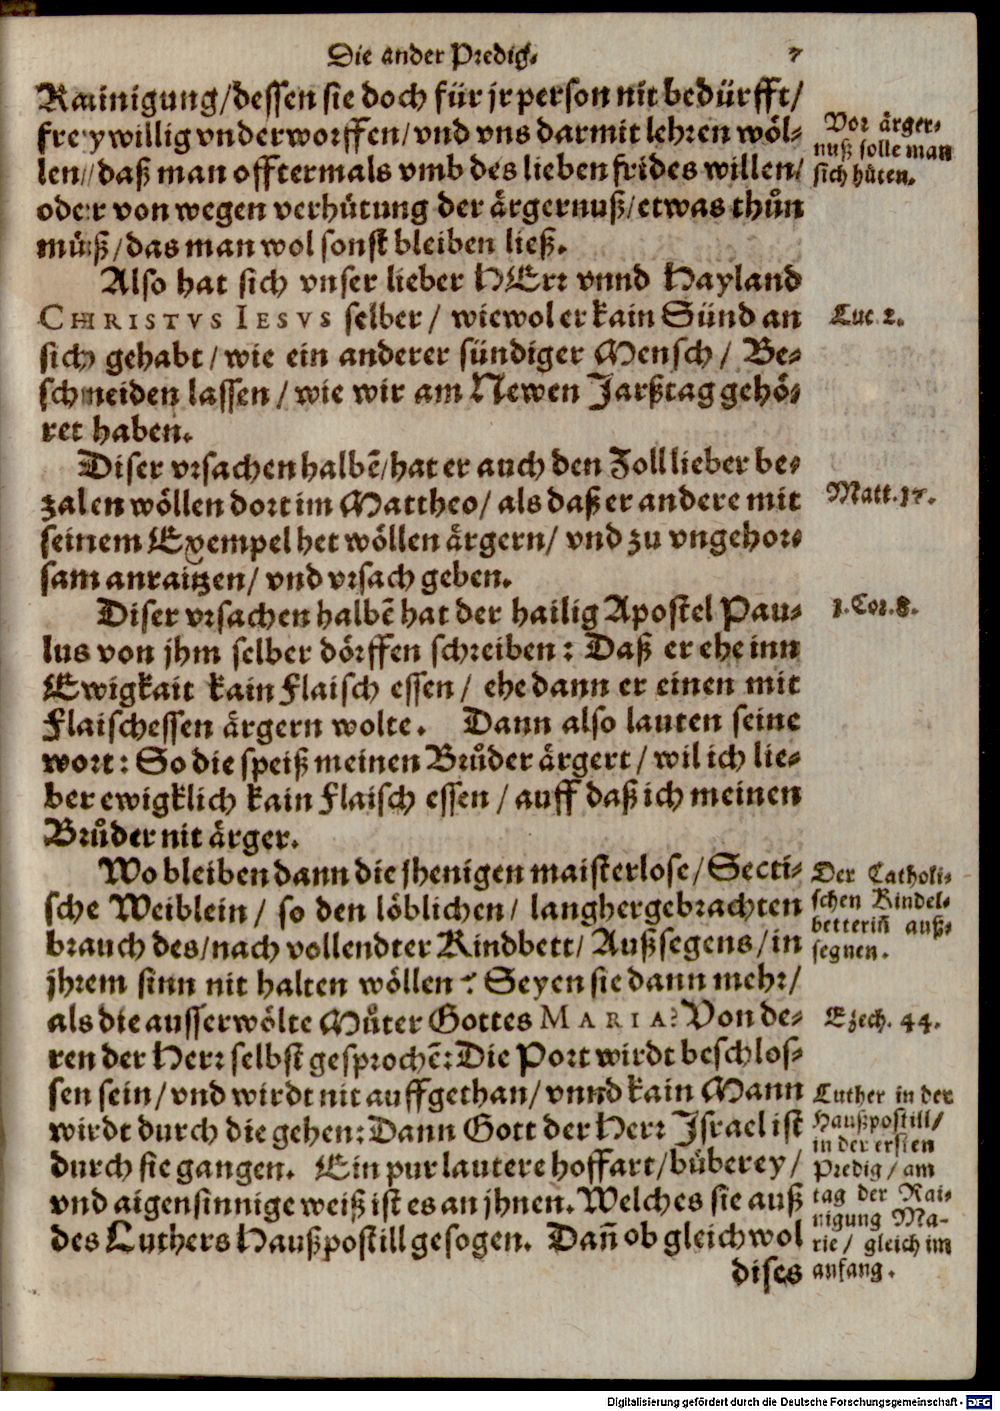 Die ander Predig. 7
Rainigung/dessen sie doch für jr person nit bedürfft/
freywillig vnderworffen/vnd vns darmit lehren wöl-
len/daß man offtermals vmb des lieben frides willen/
oder von wegen verhütung der ärgernuß/etwas thůn
můß/das man wol sonst bleiben ließ.
Vor ärger-
nuß solle man
sich hüten.
Also hat sich vnser lieber HErr vnnd Hayland
CHRISTVS IESVS selber/ wiewol er kain Sünd an
sich gehabt/wie ein anderer sündiger Mensch/ Be-
schneiden lassen/wie wir am Newen Jarßtag gehö-
ret haben.
Luc. 2.
Diser vrsachen halbē/hat er auch den Zoll lieber be-
zalen wöllen dort im Mattheo/ als daß er andere mit
seinem Exempel het wöllen ärgern/ vnd zu vngehor-
sam anraitzen/ vnd vrsach geben.
Matt. 17.
Diser vrsachen halbē hat der hailig Apostel Pau-
lus von jhm selber dörffen schreiben: Daß er ehe inn
Ewigkait kain Flaisch essen/ ehe dann er einen mit
Flaischessen ärgern wolte. Dann also lauten seine
wort: So die speiß meinen Brůder ärgert/wil ich lie-
ber ewigklich kain Flaisch essen/auff daß ich meinen
Brůder nit ärger.
1. Cor. 8.
Wo bleiben dann die jhenigen maisterlose/Secti-
sche Weiblein/ so den löblichen/ langhergebrachten
brauch des/nach vollendter Kindbett/Außsegens/in
jhrem sinn nit halten wöllen? Seyen sie dann mehr/
als die ausserwölte Můter Gottes MARIA? Von de-
ren der Herr selbst gesprochē: Die Port wirdt beschlos-
sen sein/vnd wirdt nit auffgethan/vnnd kain Mann
wirdt durch die gehen: Dann Gott der Herr Israel ist
durch sie gangen. Ein pur lautere hoffart/büberey/
vnd aigensinnige weiß ist es an jhnen. Welches sie auß
des Luthers Haußpostill gesogen. Dañ ob gleich wol
dises
Der Catholi-
schen Kindel-
betteriñ auß-
segnen.
Ezech. 44.
Luther in der
Haußpostill/
in der ersten
Predig/am
tag der Rai-
nigung Ma-
rie/ gleich im
anfang.
Digitalisierung gefördert durch die Deutsche Forschungsgemeinschaft - DFG